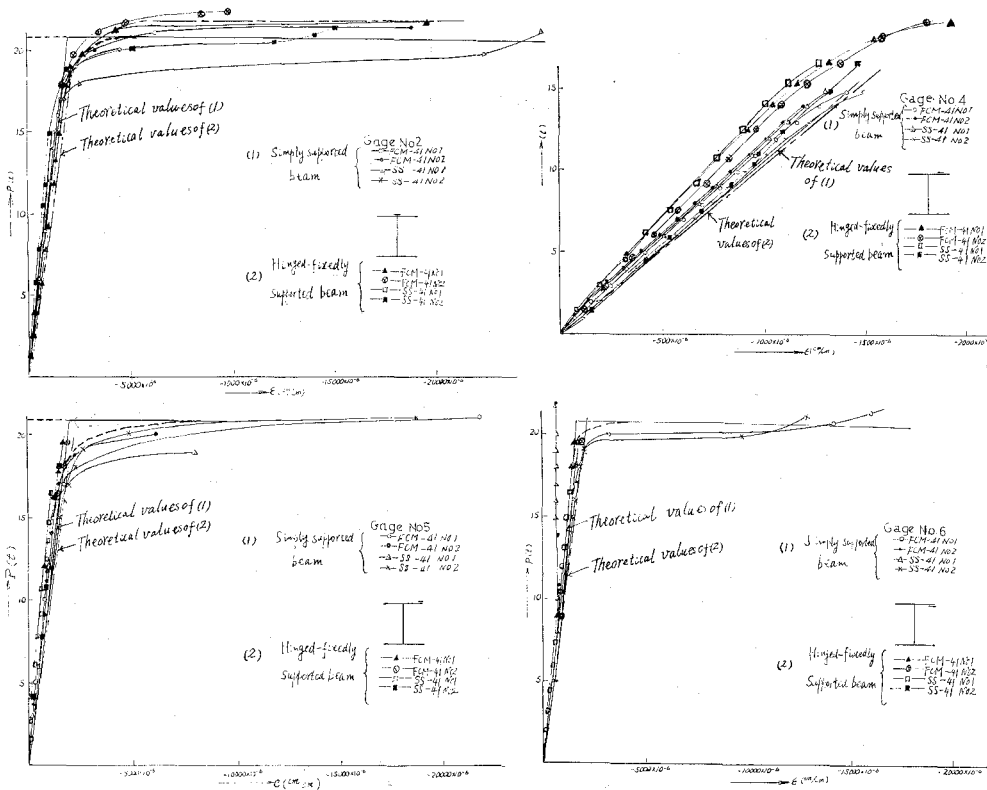 20
15
10
5
P(t)
Theoretical values of (1)
Theoretical values of (2)
Gage No2
(1) Simply suported
beam
FCM-41 NO1
FCM-41 NO2
SS-41 NO1
SS-41 NO2
(2) Hinged-fixedly
supported beam
FCM-41 NO1
FCM-41 NO2
SS-41 NO1
SS-41 NO2
-5000×10⁻⁶
-10000×10⁻⁶
-15000×10⁻⁶
-20000×10⁻⁶
20
15
10
5
Gage No 4
(1) Simply supported
beam
FCM-41 NO1
FCM-41 NO2
SS-41 NO1
SS-41 NO2
Theoretical values
of (1)
Theoretical
values of (2)
(2) Hinged-fixedly
supported beam
FCM-41 NO1
FCM-41 NO2
SS-41 NO1
SS-41 NO2
-500×10⁻⁶
-1000×10⁻⁶
-1500×10⁻⁶
-2000×10⁻⁶
20
15
10
5
P(t)
Theoretical values of (1)
Theoretical values of (2)
Gage No5
(1) Simply supported
beam
FCM-41 NO1
FCM-41 NO2
SS-41 NO1
SS-41 NO2
(2) Hinged-fixedly
Supported beam
FCM-41 NO1
FCM-41 NO2
SS-41 NO1
SS-41 NO2
-5000×10⁻⁶
-10000×10⁻⁶
-15000×10⁻⁶
-20000×10⁻⁶
20
15
10
5
P(t)
Theoretical values of (1)
Theoretical values of (2)
Gage No.6
(1) Simply supported
beam
FCM-41 NO1
FCM-41 NO2
SS-41 NO1
SS-41 NO2
(2) Hinged-fixedly
Supported beam
FCM-41 NO1
FCM-41 NO2
SS-41 NO1
SS-41 NO2
-5000×10⁻⁶
-10000×10⁻⁶
-15000×10⁻⁶
-20000×10⁻⁶
ε (cm/cm)